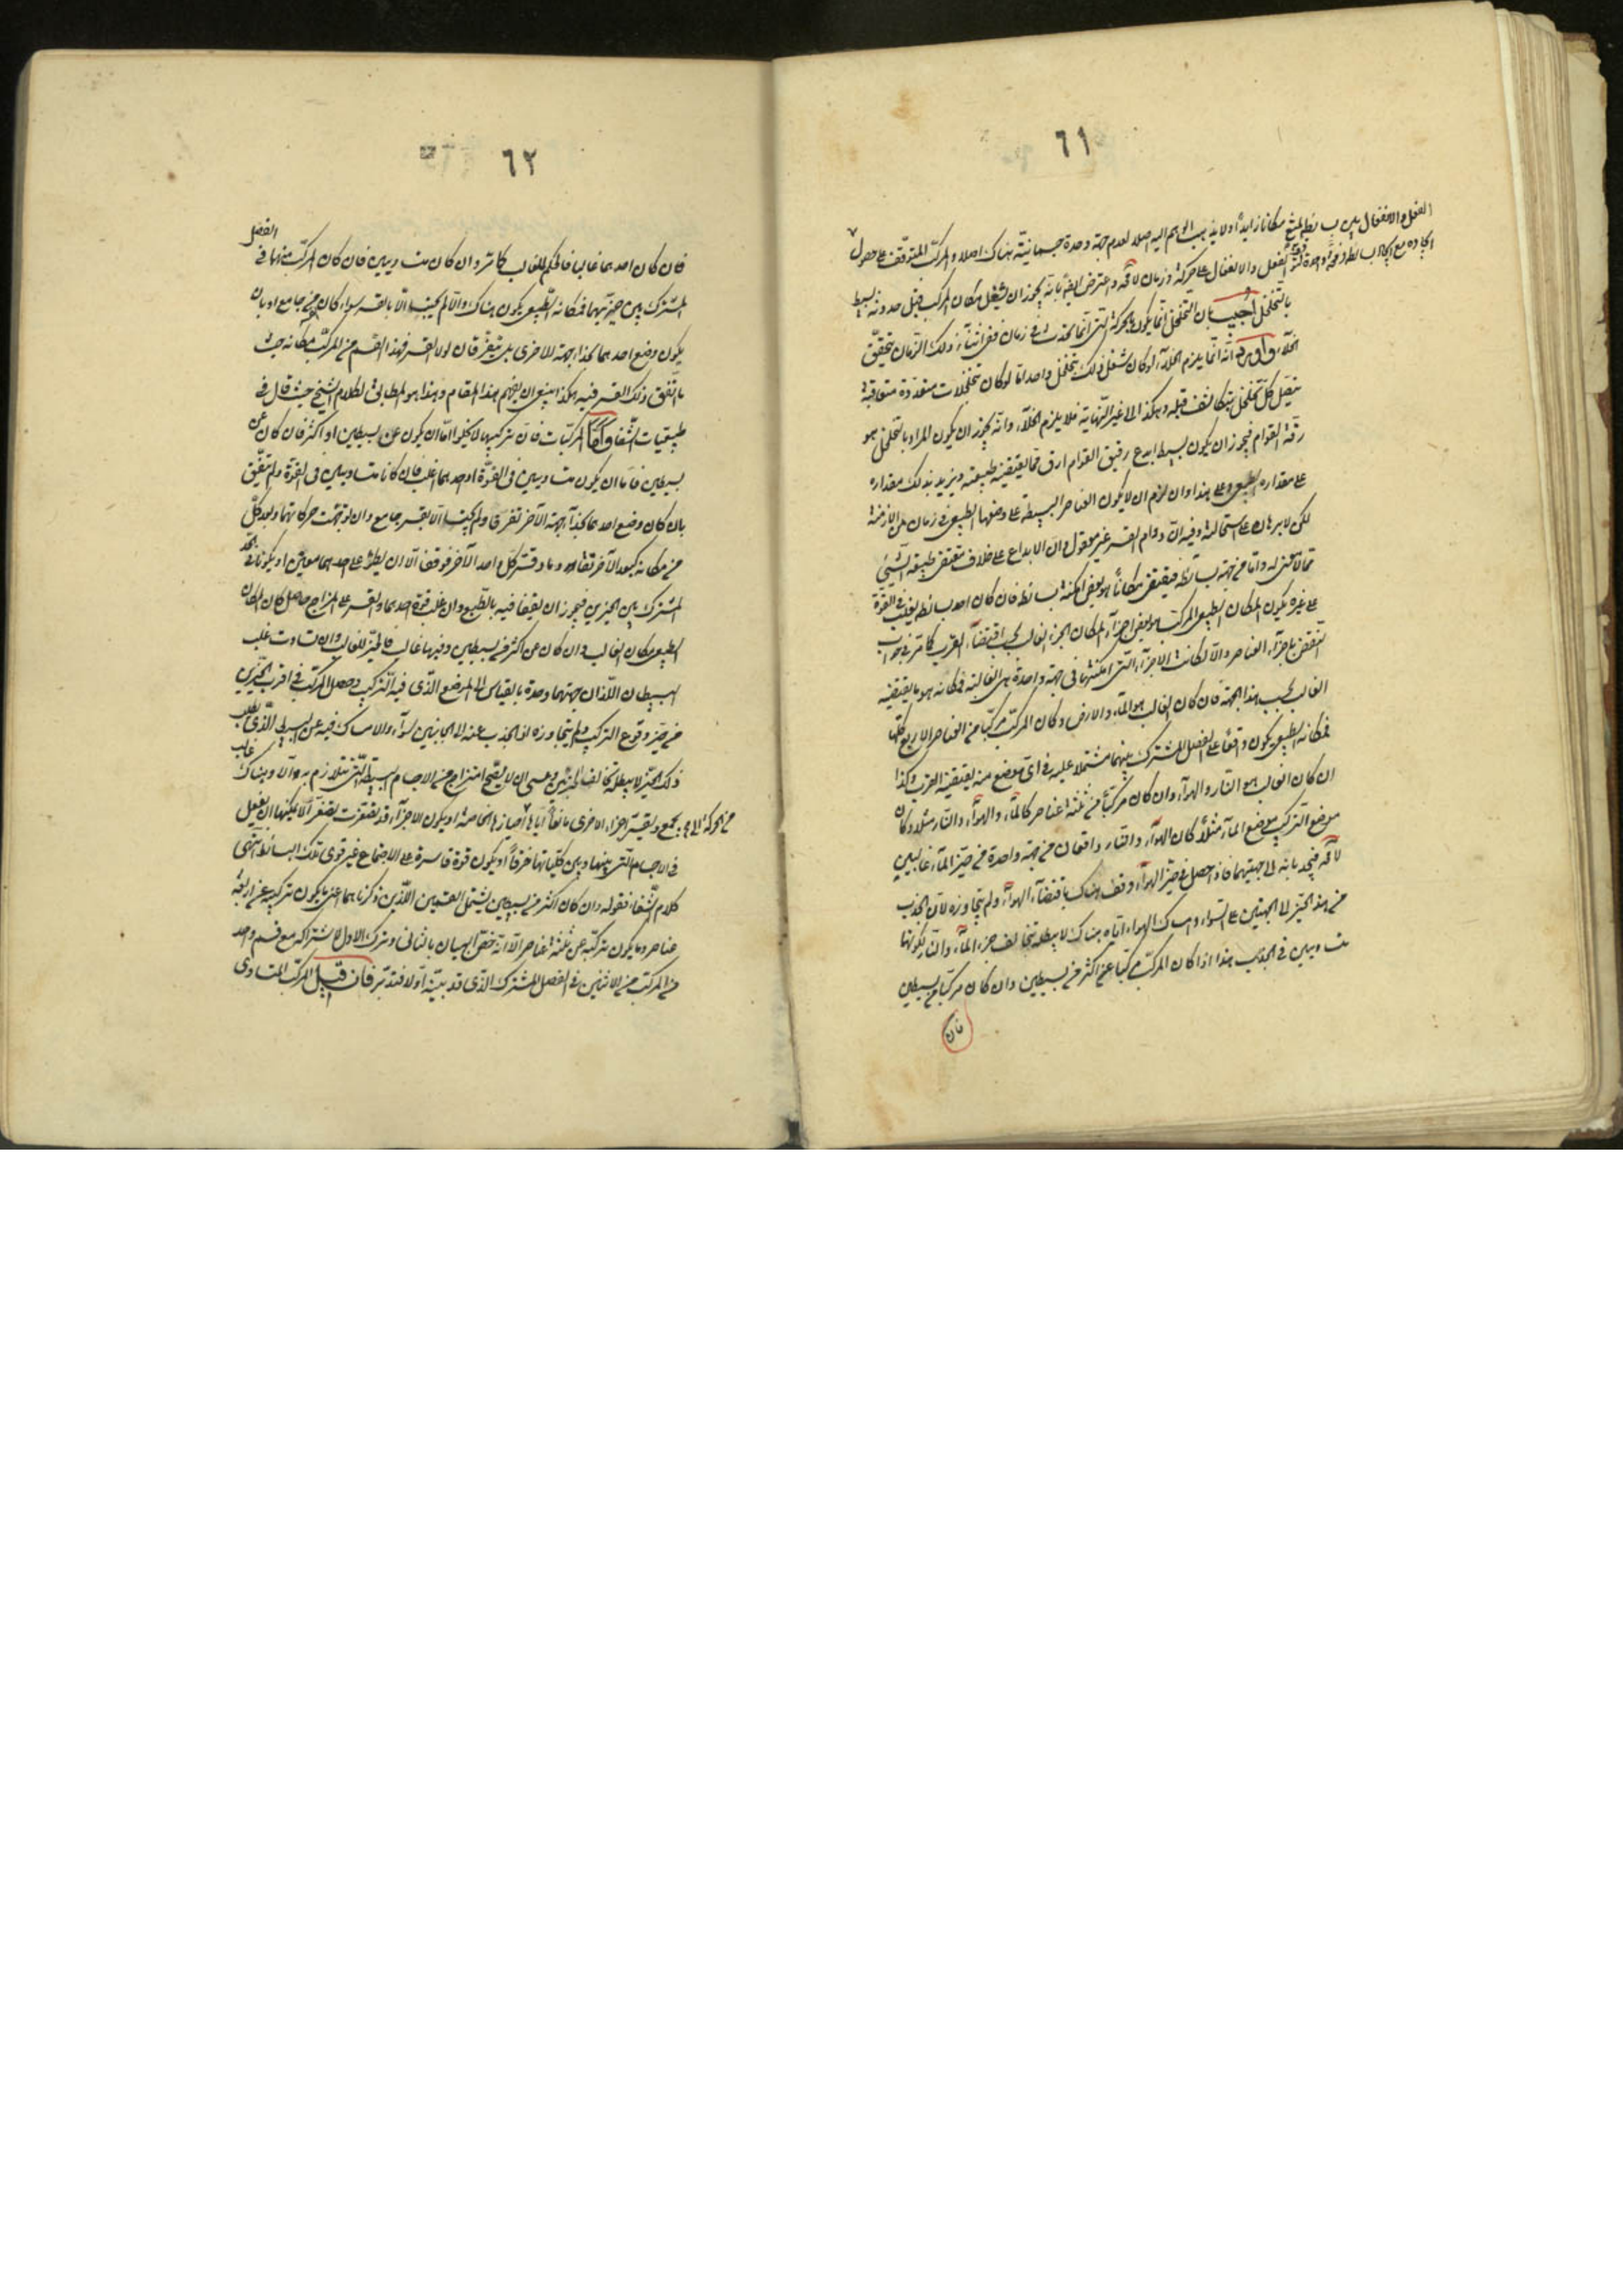 ٦١
الفعل والانفعال بين بسائطه لمنع مكانا زايدا او لا يذهب الجسم اليه اصلا لعدم جهة وحدة جسمانية هناك اصلا والمركب المتوقف على حصول
الفعل والانفعال على حركة وزمان لا محه واعترض ايضا بانه يجوز ان يشغل مكان المركب قبل حدوثه بسيط
بالتخلخل اجيب بان التخلخل انما يكون بالحركة التي انما تحدث في زمان ففي اثناء ذلك الزمان يتحقق
الخلاء واورد انه انما يلزم الخلاء لو كان شغل ذلك بتخلخل واحد اما لو كان تخلخلات متعددة متعاقبة
يتصل كل تخلخل بتكاثف قبله وهكذا الى غير النهاية فلا يلزم الخلاء وانه يجوز ان يكون المراد بالتخلخل هو
رقة القوام فيجوز ان يكون بسيط ابدع رقيق القوام ارق مما يقتضيه طبيعته ويزيد بذلك مقداره
على مقداره الطبيعي وعلى هذا وان لزم ان لا يكون العناصر البسيطة على وضعها الطبيعي في زمان من الازمنة
لكن لا برهان على استحالته وفيه ان دوام القسر غير معقول وان الابداع على خلاف مقتضى طبيعة الشيء
مما لا معنى له واما من جهة بسائطه فيقتضى مكانا هو بعض امكنة بسائطه فان كان احد بسائطه يغلب في القوة
على غيره يكون المكان الطبيعي للمركب هو بعض اجزاء مكان الجزء الغالب بحسب اقتضاء القرب كما مر في جواب
النقض باجزاء العناصر والا لكانت الاجزاء التي امكنتها في جهة واحدة هى الغالبة فمكانه هو ما يقتضيه
الغالب بحسب هذا الجهة فان كان الغالب هو الماء والارض وكان المركب مركبا من العناصر الاربع كلها
فمكانه الطبيعي يكون واقعا على الفصل المشترك بينهما مشتملا عليه في اى موضع منه يقتضيه القرب وكذا
ان كان الغالب هو النار والهواء وان كان مركبا من ثلثة عناصر كالماء والهواء والنار مثلا وكان
موضع التركيب موضع الماء مثلا كان الهواء والنار واقعان من جهة واحدة من حيز الماء غالبين
لا محه فيجذبانه الى جهتيهما فاذا حصل في حيز الهواء وقف هناك باقتضاء الهواء ولم يتجاوزه لان الجذب
من هذا الحيز الى الجهتين على السواء وامساك الهواء اياه هناك لا يبطله تخالف جزء الماء والنار لكونها
متساويين في الجذب هذا اذا كان المركب مركبا عن اكثر من بسيطين وان كان مركبا من بسيطين
فان
٦٢
فان كان احدهما غالبا فالحكم للغالب كما مر وان كان متساويين فان كان المركب منهما في الفصل
المشترك بين حيزيهما فمكانه الطبيعي يكون هناك والا لم يجتمعا الا بالقسر سواء كان من جامع او بان
يكون وضع احدهما كذا بجهة للاخرى بل يتفرقان لولا القسر فهذا القسم من المركب مكانه حيث
ما اتفق ذلك القسر فيه هكذا ينبغى ان يفهم هذا المقام وهذا هو المطابق لكلام الشيخ حيث قال في
طبيعيات الشفا واما المركبات فان تركيبها لا يخلوا اما ان يكون عن بسيطين او اكثر فان كان عن
بسيطين فاما ان يكون متساويين في القوة او احدهما اغلب فان كانا متساويين في القوة ولم يتفق
بان كان وضع احدهما كذا بجهة الآخر تفرقا ولم يجتمعا الا بقسر جامع وان توجهت حركاتهما وبعد كل
من مكانه كبعد الآخر تقاوما وقسر كل واحد الآخر فوقفا الا ان يطرء على احدهما معين او يكونا في الحد
المشترك بين الحيزين فيجوز ان يقفا فيه بالطبع وان غلب قوة احدهما والقسر على المزاج حاصل كان المكان
الطبيعي مكان الغالب وان كان عن اكثر من بسيطين وفيها غالب فالحيز للغالب وان تساوت غلب
البسيطان اللذان جهتهما واحدة بالقياس الى الموضع الذى فيه التركيب وحصل المركب في اقرب الحيزين
من حيز وقوع التركيب ولم يتجاوزه اذ الجذب عنه الى الجانبين سواء والامساك فيه عن البسيط الذى يطلب
ذلك الحيز لا يبطله تخالف الجزئين وعسى ان لا يصح امتزاج من الاجسام البسيطة التي تتلازم به والا وهناك غالب
من يحركه الى حيزه يجمع ويقسر اجزاء الاخرى مانعا اياها احيازها الخاصة او يكون الاجزاء قد تصغرت تصغرا لا يمكنها ان يفعل
في الاجسام التي بينها وبين كلياتها خرقا او يكون قوة قاسرة على الاجتماع غير قوى تلك البسائط انتهى
كلام الشفا فقوله وان كان اكثر من بسيطين يشتمل القسمين اللذين ذكرناهما اعنى ما يكون تركيبه عن اربعة
عناصر وما يكون تركبه عن ثلثة عناصر الا انه خص البيان بالثانى وترك الاول لاشتراكه مع قسم واحد
من المركب من الاثنين في الفصل المشترك الذى قد بينه اولا فتدبر فان قيل المركب المتساوى